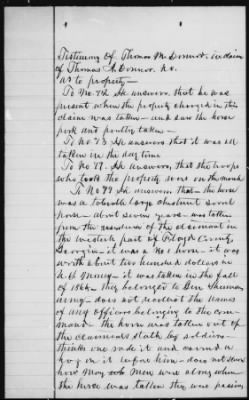 Testimony of Thomas McConnor, in claim
of Thomas A Connor, No.
as to property—
To No. 72 He answers, that he was
present when the property charged in this
claim was taken—and saw the horse
pork and poultry taken—
To No 73 He answers, that it was all
taken in the day time
To No 77. He answers, that the troops
who took the property were on the march
No 99 He answers that—the horse
was a tolerably large chestnut sorrel
horse—about seven years—was taken
from the residence of the claimant in
the western part of Floyd County,
Georgia—it was a No 1 horse—it was
worth about two hundred dollars in
U.S. money—it was taken in the fall
of 1864—they belonged to Gen Sherman
army—does not recollect the names
of any officers belonging to the com-
mand—the horse was taken out of
the claimants stable by soldiers—
thinks one rode it and carried a
hog on it before him—does not know
how many men were along when
the horse was taken they were passing